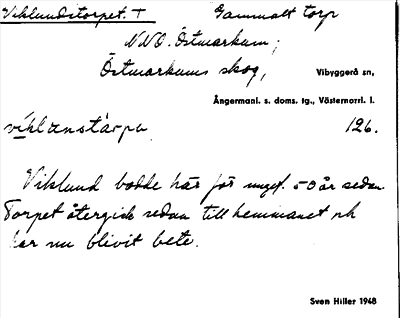 Viklundstorpet. T Gammalt torp
NNO. Östmarkum;
Östmarkums skog, Vibyggerå sn,
Ångermanl. s. doms. tg., Västernorrl. l.
vi̱klanstárpa 126.
Viklund bodde här för ungef. 50 år sedan.
Torpet återgick sedan till hemmanet och
har nu blivit bete.
Sven Hiller 1948